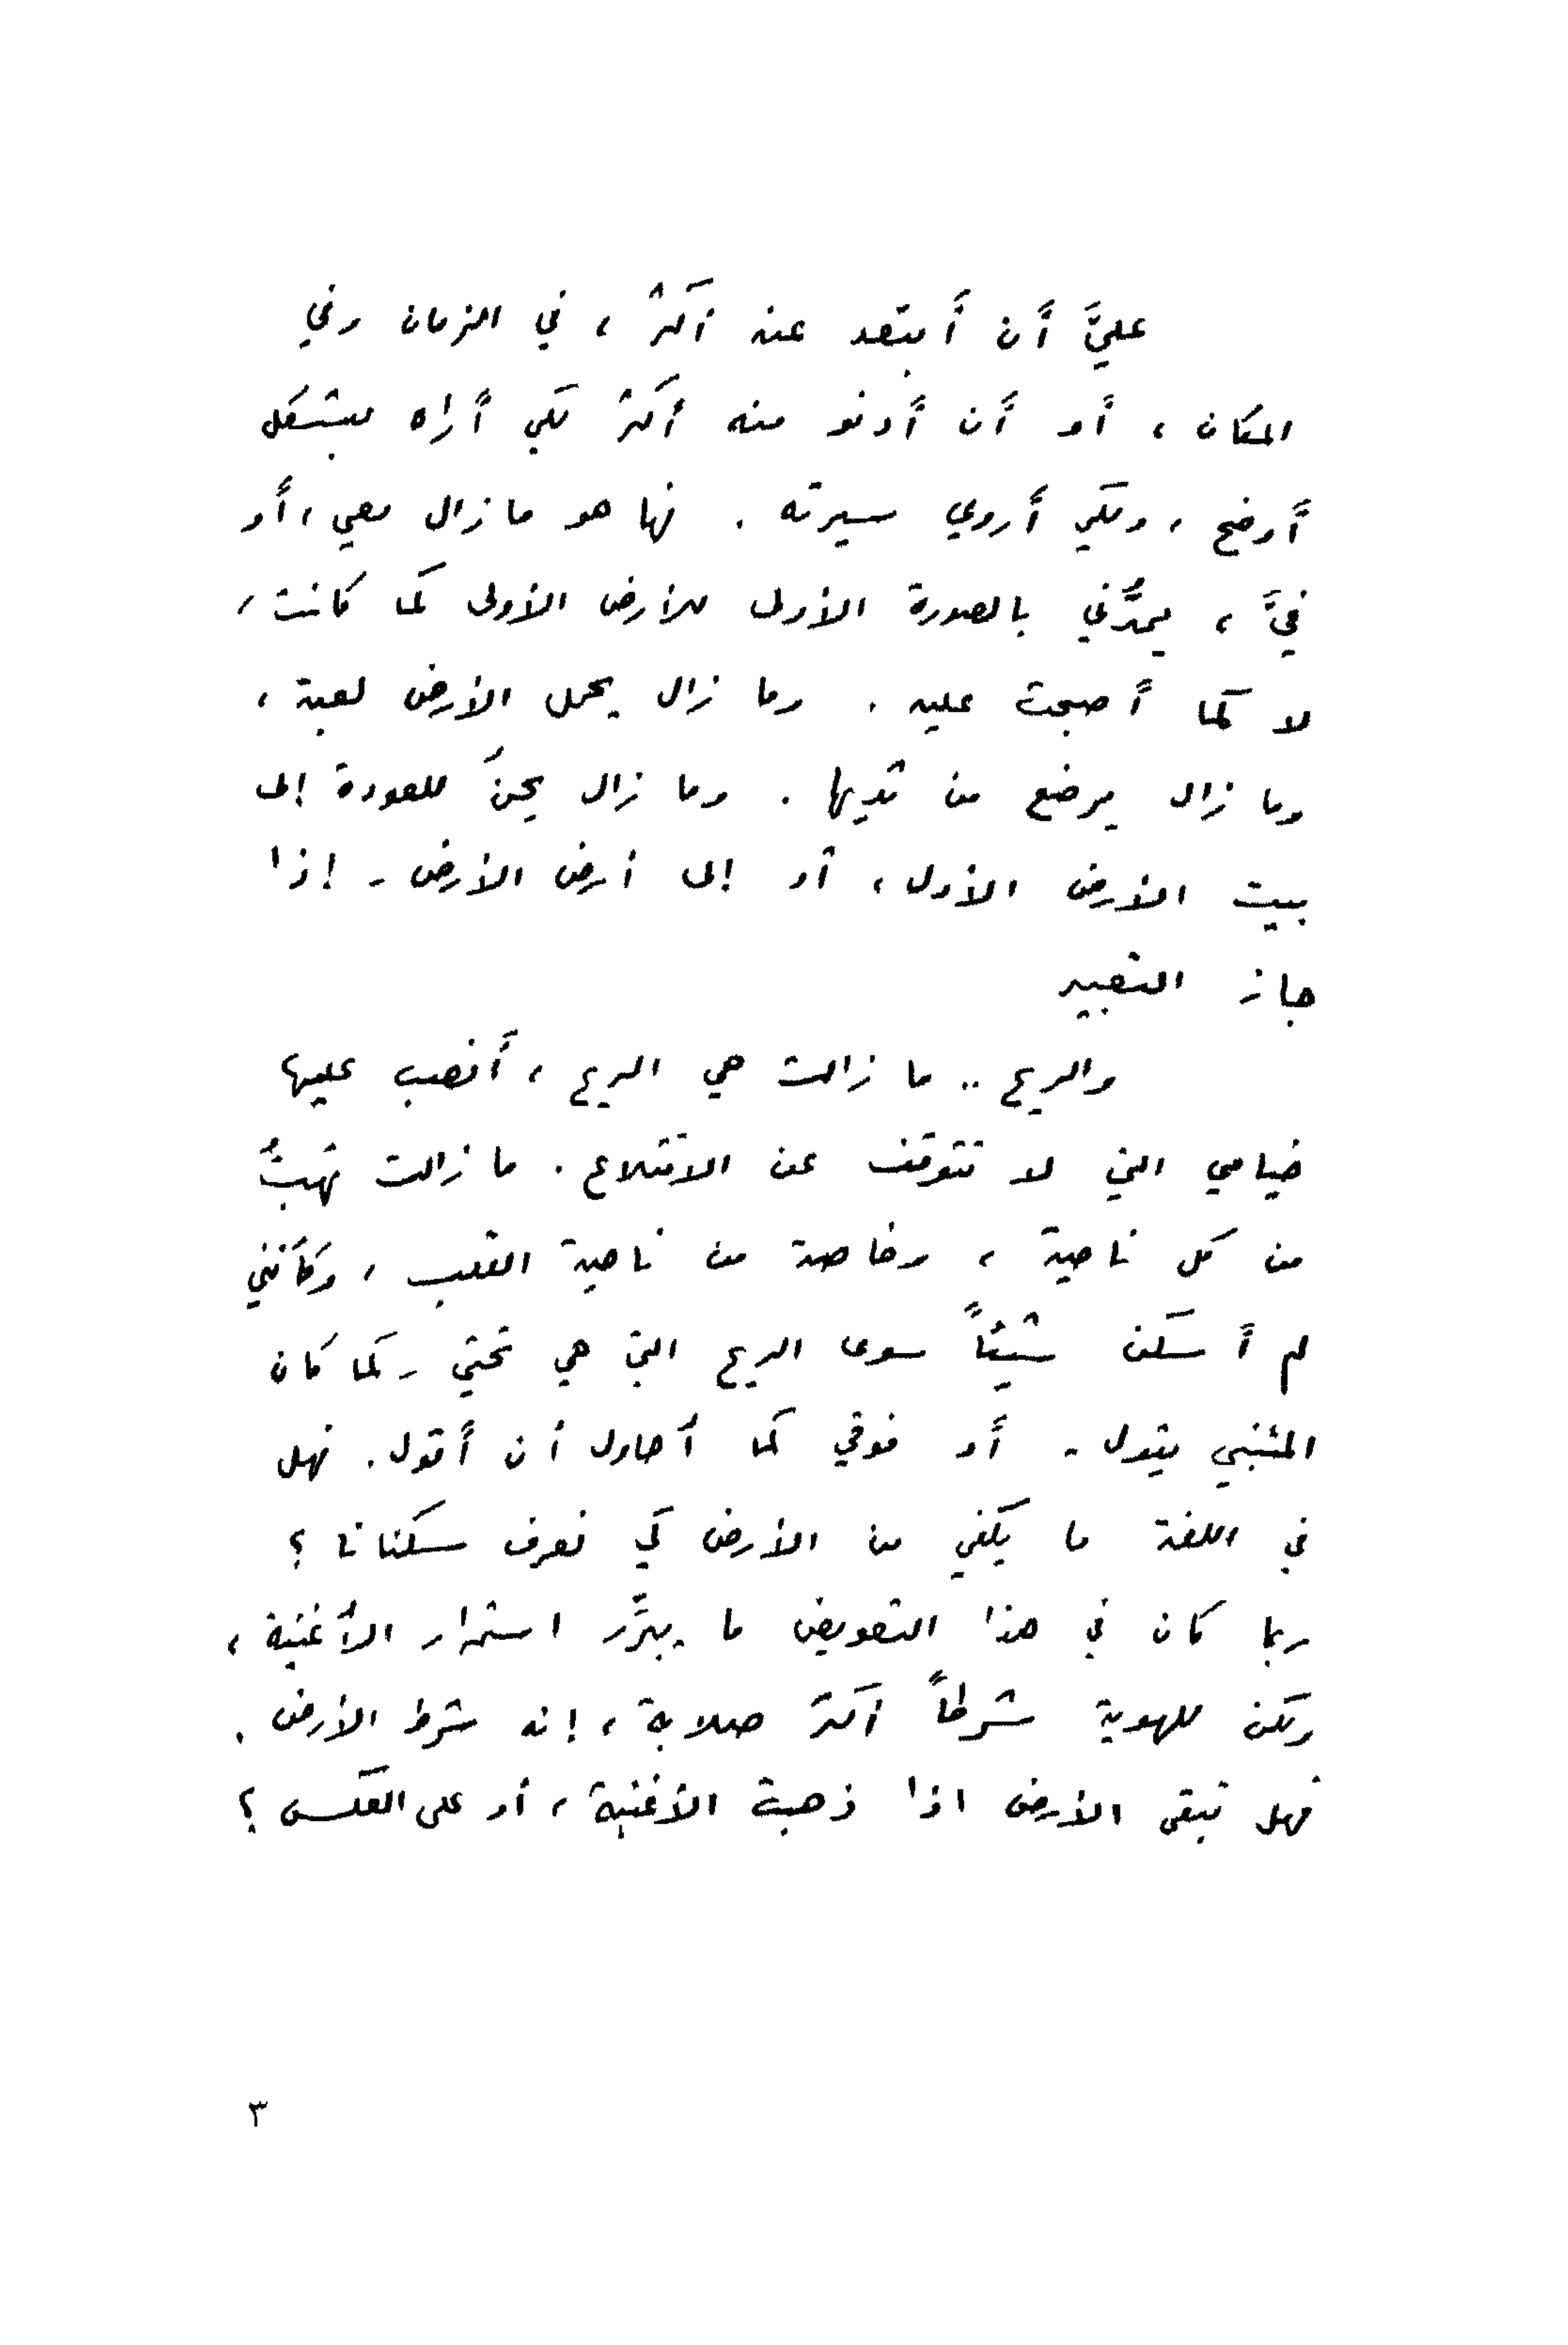 عليَّ أَن أَبتعد عنه أكثر ، في الزمان وفي
المكان ، أَو أَن أَدنو منه أكثر لكي أَراه بشكل
أَوضح ، ولكي أَروي سيرته . فها هو مازال معي ، أَو
فيَّ ، يمدُّني بالصورة الأولى للأرض الأولى كما كانت ،
لا كما أَصبحت عليه . وما زال يحمل الأرض لعبة ،
وما زال يرضع من ثديها . وما زال يحنّ للعودة إلى
بيت الأرض الأول ، أو إلى أرض الأرض - إذا
جاز التعبير
والريح .. ما زالت هي الريح ، أَنصب عليها
خيامي التي لا تتوقف عن الاقتلاع . ما زالت تهبُّ
من كل ناحية ، وخاصة من ناحية القلب ، وكأنني
لم أَسكن شيئاً سوى الريح التي هي تحتي - كما كان
المتنبي يقول - أَو فوقي كما أُحاول أن أَقول . فهل
في اللغة ما يكفي من الأرض كي نعرف سكنانا ؟
ربما كان في هذا التعويض ما يبرِّر استمرار الأُغنية ،
ولكن للهوية شرطاً أكثر صلابة ، إنه شرط الأرض .
فهل تبقى الأرض اذا ذهبت الأغنية ، أو على العكس ؟
٣